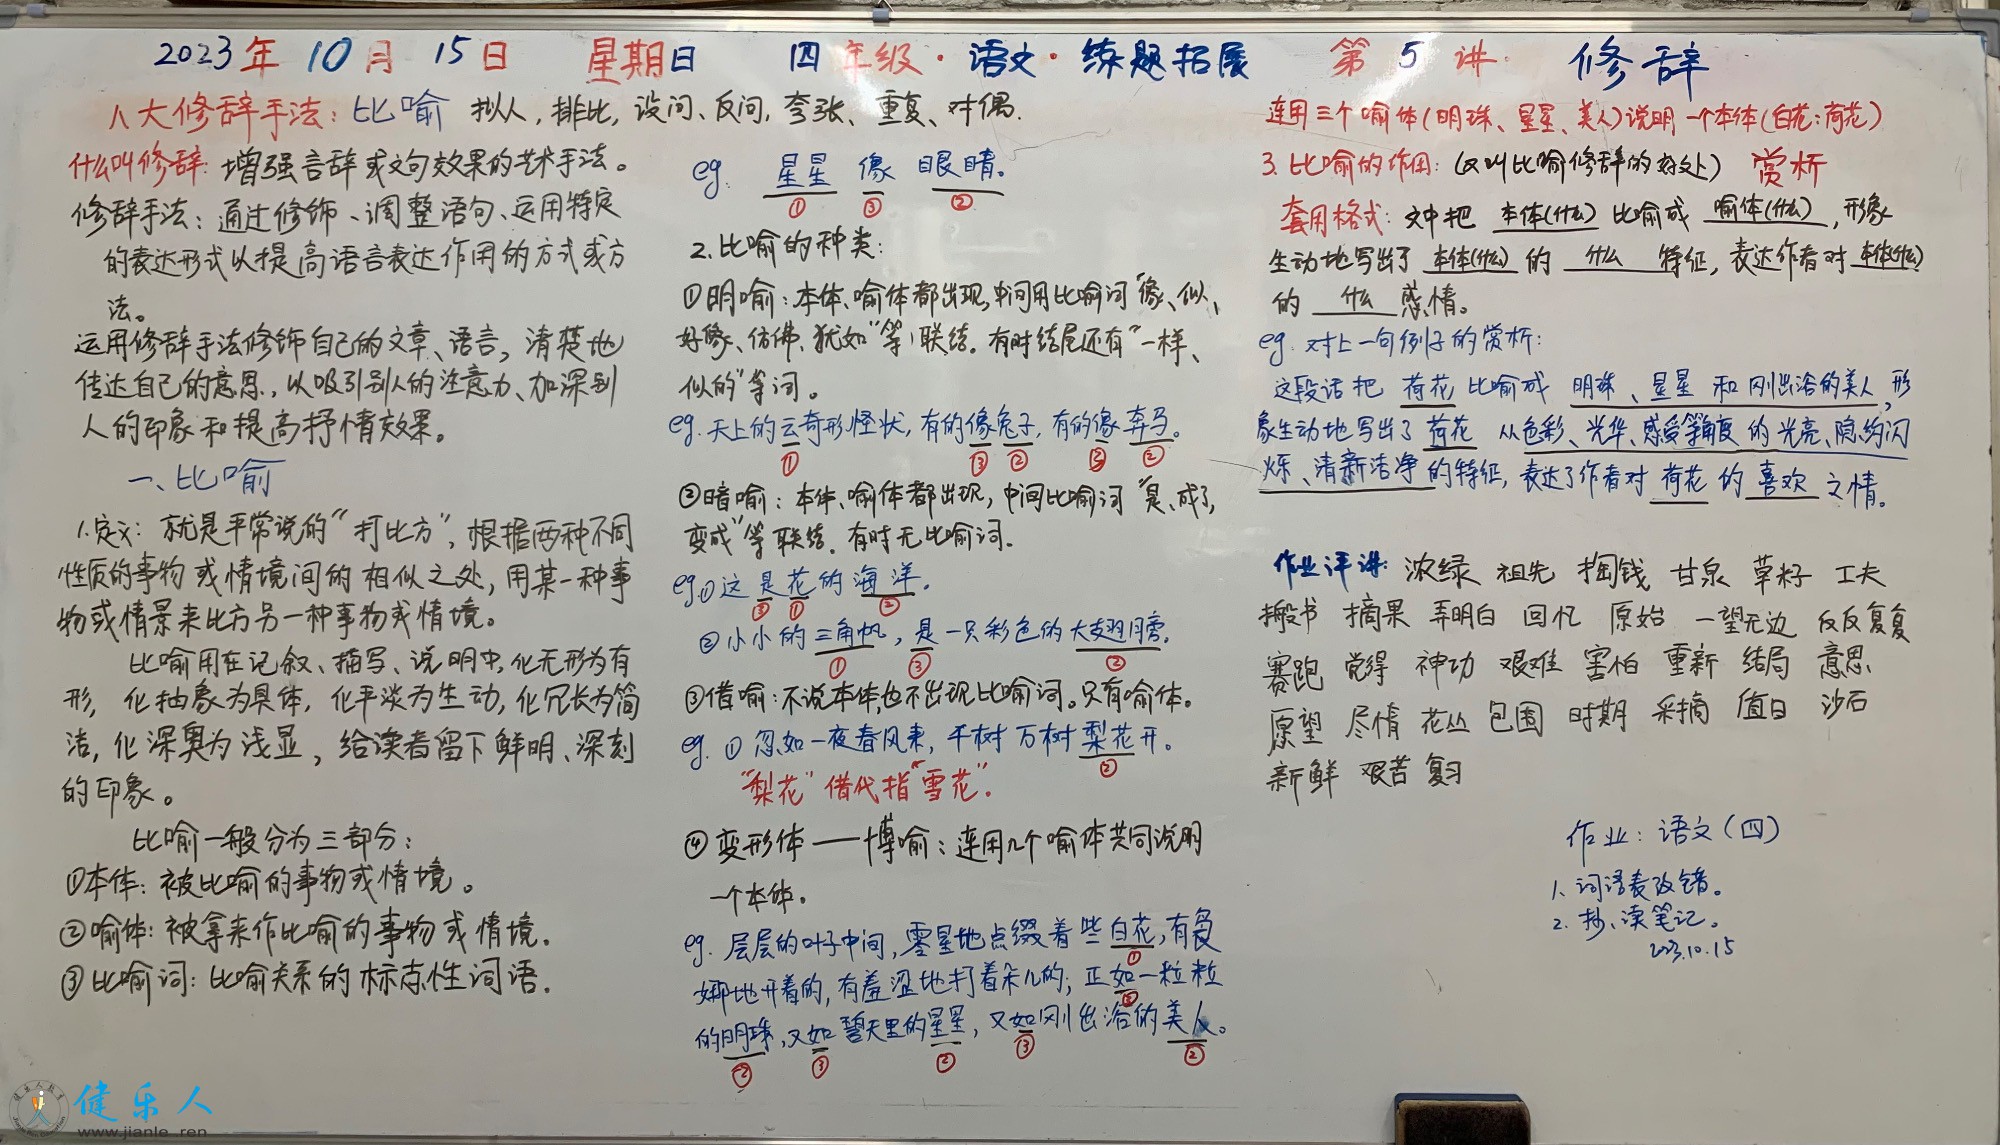 2023年 10月 15日 星期日 四年级·语文·练题拓展 第5讲 修辞
八大修辞手法: 比喻 拟人, 排比, 设问、反问, 夸张、重复、对偶.
什么叫修辞: 增强言辞或文句效果的艺术手法。
修辞手法: 通过修饰、调整语句、运用特定
的表达形式以提高语言表达作用的方式或方
法。
运用修辞手法修饰自己的文章、语言, 清楚地
传达自己的意思, 以吸引别人的注意力、加深别
人的印象和提高抒情效果。
一、比喻
1.定义: 就是平常说的“打比方”, 根据两种不同
性质的事物或情境间的相似之处, 用某一种事
物或情景来比方另一种事物或情境。
比喻用在记叙、描写、说明中, 化无形为有
形, 化抽象为具体, 化平淡为生动, 化冗长为简
洁, 化深奥为浅显, 给读者留下鲜明、深刻
的印象。
比喻一般分为三部分:
①本体: 被比喻的事物或情境。
②喻体: 被拿来作比喻的事物或情境.
③比喻词: 比喻关系的标志性词语.
eg. 星星 像 眼睛。
① ③ ②
2.比喻的种类:
①明喻: 本体、喻体都出现, 中间用比喻词“像、似、
好像、仿佛、犹如”等联结。有时结尾还有“一样、
似的”等词。
eg. 天上的云奇形怪状, 有的像兔子, 有的像奔马。
① ③ ② ③ ②
②暗喻: 本体、喻体都出现, 中间比喻词“是、成了,
变成”等联结. 有时无比喻词.
eg.①这是花的海洋.
③ ① ②
②小小的三角帆, 是一只彩色的大翅膀.
① ③ ②
③借喻: 不说本体,也不出现比喻词。只有喻体。
eg. ①忽如一夜春风来, 千树万树梨花开。
②
“梨花”借代指“雪花”.
④变形体——博喻: 连用几个喻体共同说明
一个本体。
eg. 层层的叶子中间, 零星地点缀着些白花, 有袅
①
娜地开着的, 有羞涩地打着朵儿的; 正如一粒粒
③
的明珠, 又如碧天里的星星, 又如刚出浴的美人。
② ③ ② ③ ②
连用三个喻体(明珠、星星、美人)说明一个本体(白花:荷花)
3.比喻的作用: (又叫比喻修辞的好处) 赏析
套用格式: 文中把 本体(什么) 比喻成 喻体(什么), 形象
生动地写出了 本体(什么) 的 什么 特征, 表达作者对 本体(什么)
的 什么 感情。
eg. 对上一句例子的赏析:
这段话把 荷花 比喻成 明珠、星星 和 刚出浴的美人, 形
象生动地写出了 荷花 从色彩、光华、感受等角度 的 光亮、隐约闪
烁、清新洁净的特征, 表达了作者对 荷花 的 喜欢 之情。
作业评讲: 浓绿 祖先 掏钱 甘泉 草籽 工夫
搬书 摘果 弄明白 回忆 原始 一望无边 反反复复
赛跑 觉得 神功 艰难 害怕 重新 结局 意思
愿望 尽情 花丛 包围 时期 采摘 值日 沙石
新鲜 艰苦 复习
作业: 语文(四)
1.词语表改错。
2.抄、读笔记。
2023.10.15
健乐人
www.jianle.ren